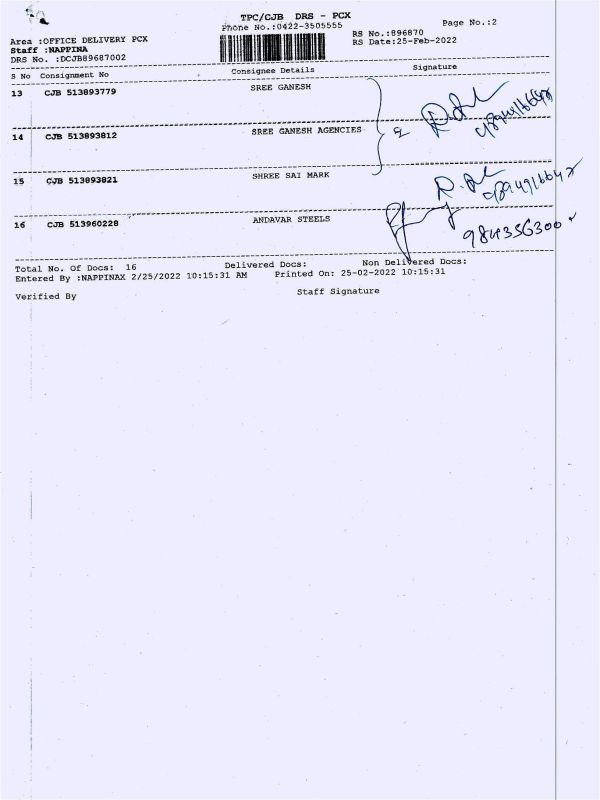 TPC/CJB DRS - PCX
Phone No.:0422-3505555
Page No.:2
Area :OFFICE DELIVERY PCX
RS No.:896870
Staff :NAPPINA
RS Date:25-Feb-2022
DRS No. :DCJB89687002
S No Consignment No Consignee Details Signature
13 CJB 513893779 SREE GANESH
14 CJB 513893812 SREE GANESH AGENCIES
15 CJB 513893821 SHREE SAI MARK
16 CJB 513960228 ANDAVAR STEELS
9843356300
Total No. Of Docs: 16 Delivered Docs: Non Delivered Docs:
Entered By :NAPPINAX 2/25/2022 10:15:31 AM Printed On: 25-02-2022 10:15:31
Verified By Staff Signature